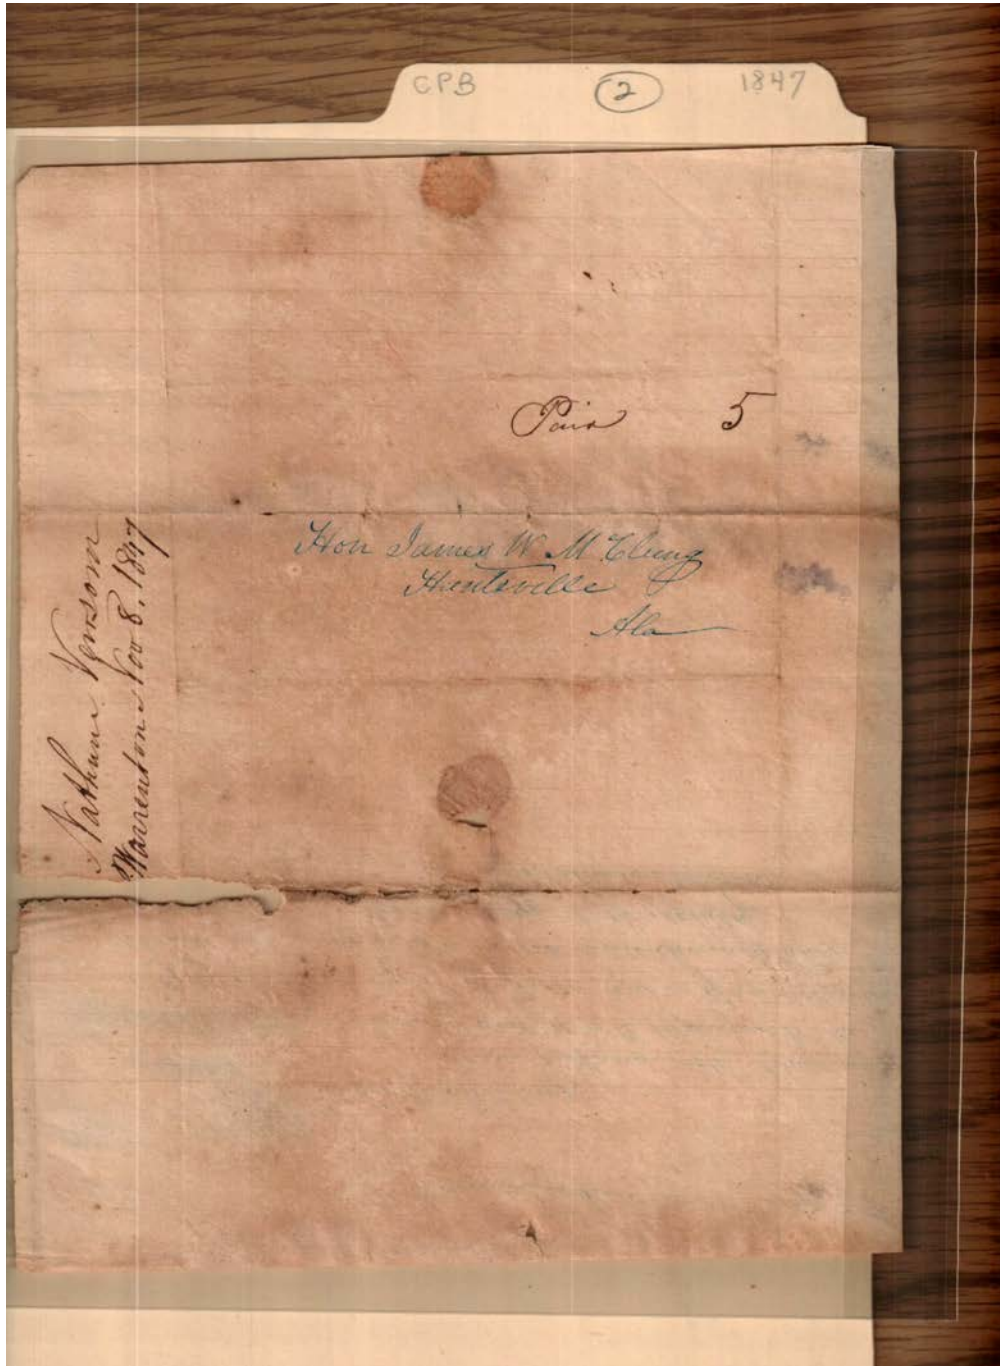 CPB 2 1847
Paid 5
Hon James W McClung
Huntsville
Ala
Nathan
Warrenton Nov 8. 1847